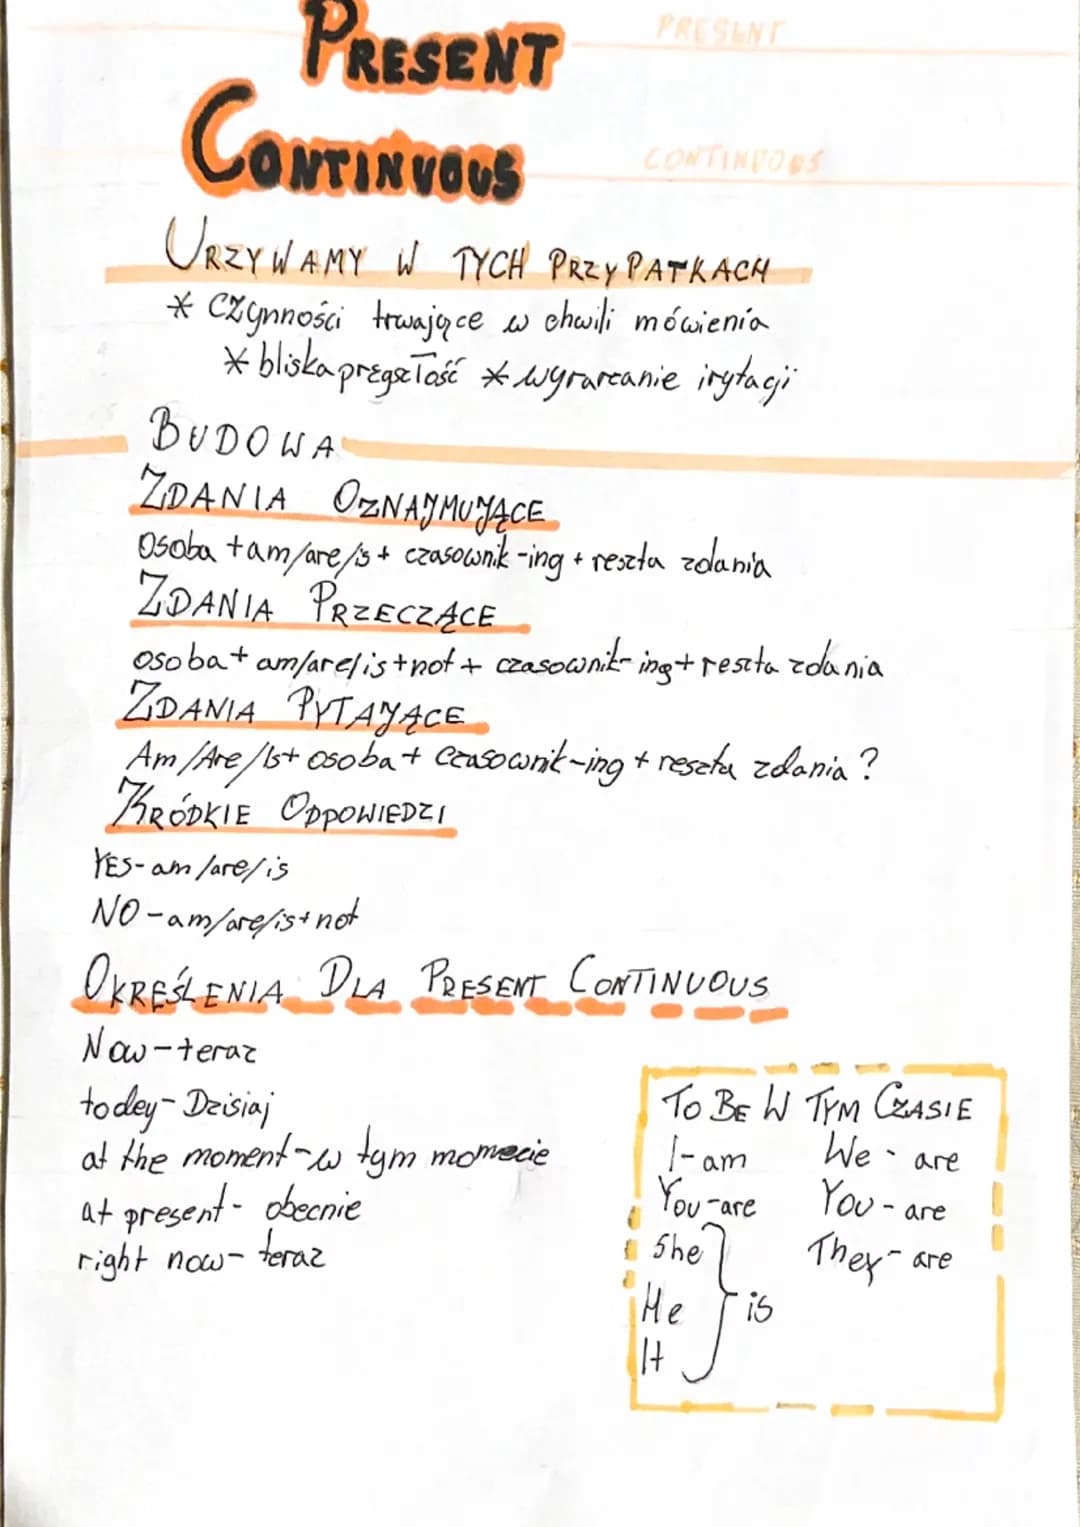 PRESENT
PRESENT
CONTINUOUS
CONTINUOUS
URZYWAMY W TYCH PRZYPATKACH
* CZynności trwające w chwili mówienia
* bliska przyszłość * wyrarzanie irytacji
BUDOWA
ZDANIA OZNAJMUJĄCE
osoba + am/are/is + czasownik -ing + reszta zdania
ZDANIA PRZECZĄCE
osoba + am/are/is + not + czasownik-ing + reszta zdania
ZDANIA PYTAJĄCE
Am/Are/Is + osoba + czasownik-ing + reszta zdania?
KRÓDKIE ODPOWIEDZI
YES - am/are/is
NO - am/are/is + not
OKREŚLENIA DLA PRESENT CONTINUOUS
Now - teraz
todey - Dzisiaj
at the moment - w tym momecie
at present - obecnie
right now - teraz
TO BE W TYM CZASIE
I - am We - are
You - are You - are
She They - are
He } is
It